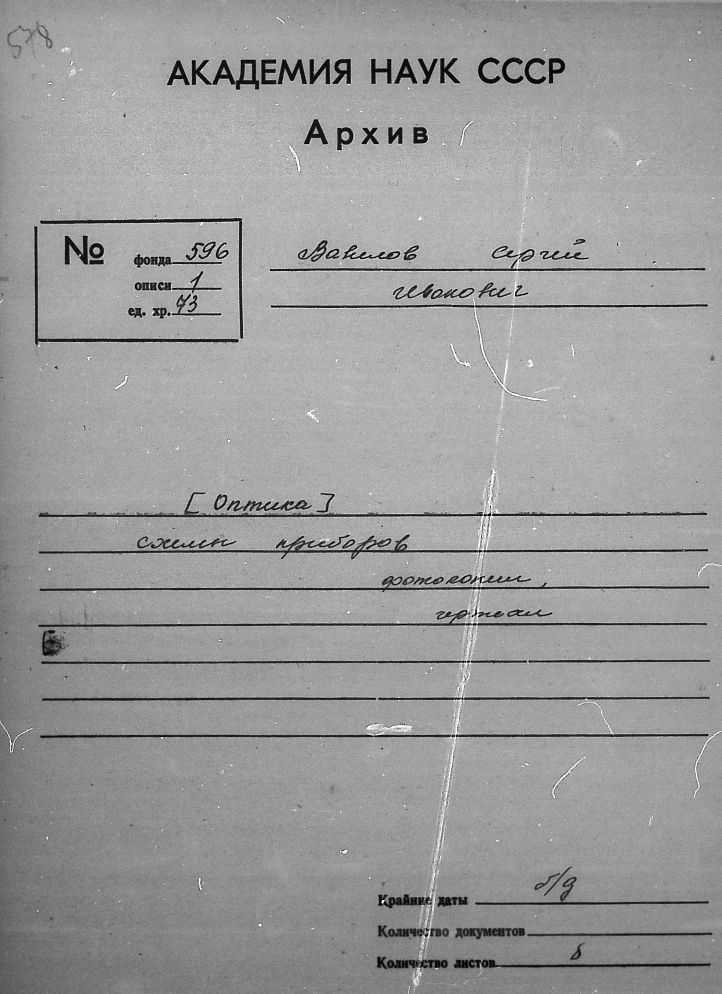 578
АКАДЕМИЯ НАУК СССР
Архив
№
фонда 596
описи 1
ед. хр. 73
Вавилов Сергей
Иванович
[Оптика]
схемы приборов
фотокопии,
Крайние даты б/д
Количество документов
Количество листов